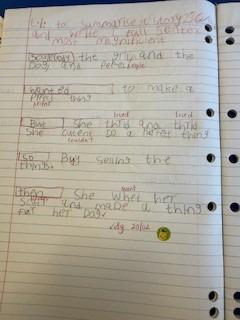 L.I: to summarise a story
and write a full sentence
most magnificent
Somebody the girl and the
Dog and people
Wanted to make a
thing
But She tried and tried
She cudent Do a perfet thing
couldn't
So By seuing the
things.
then She whet her
went
and made a thing
for her Dog.
20/02